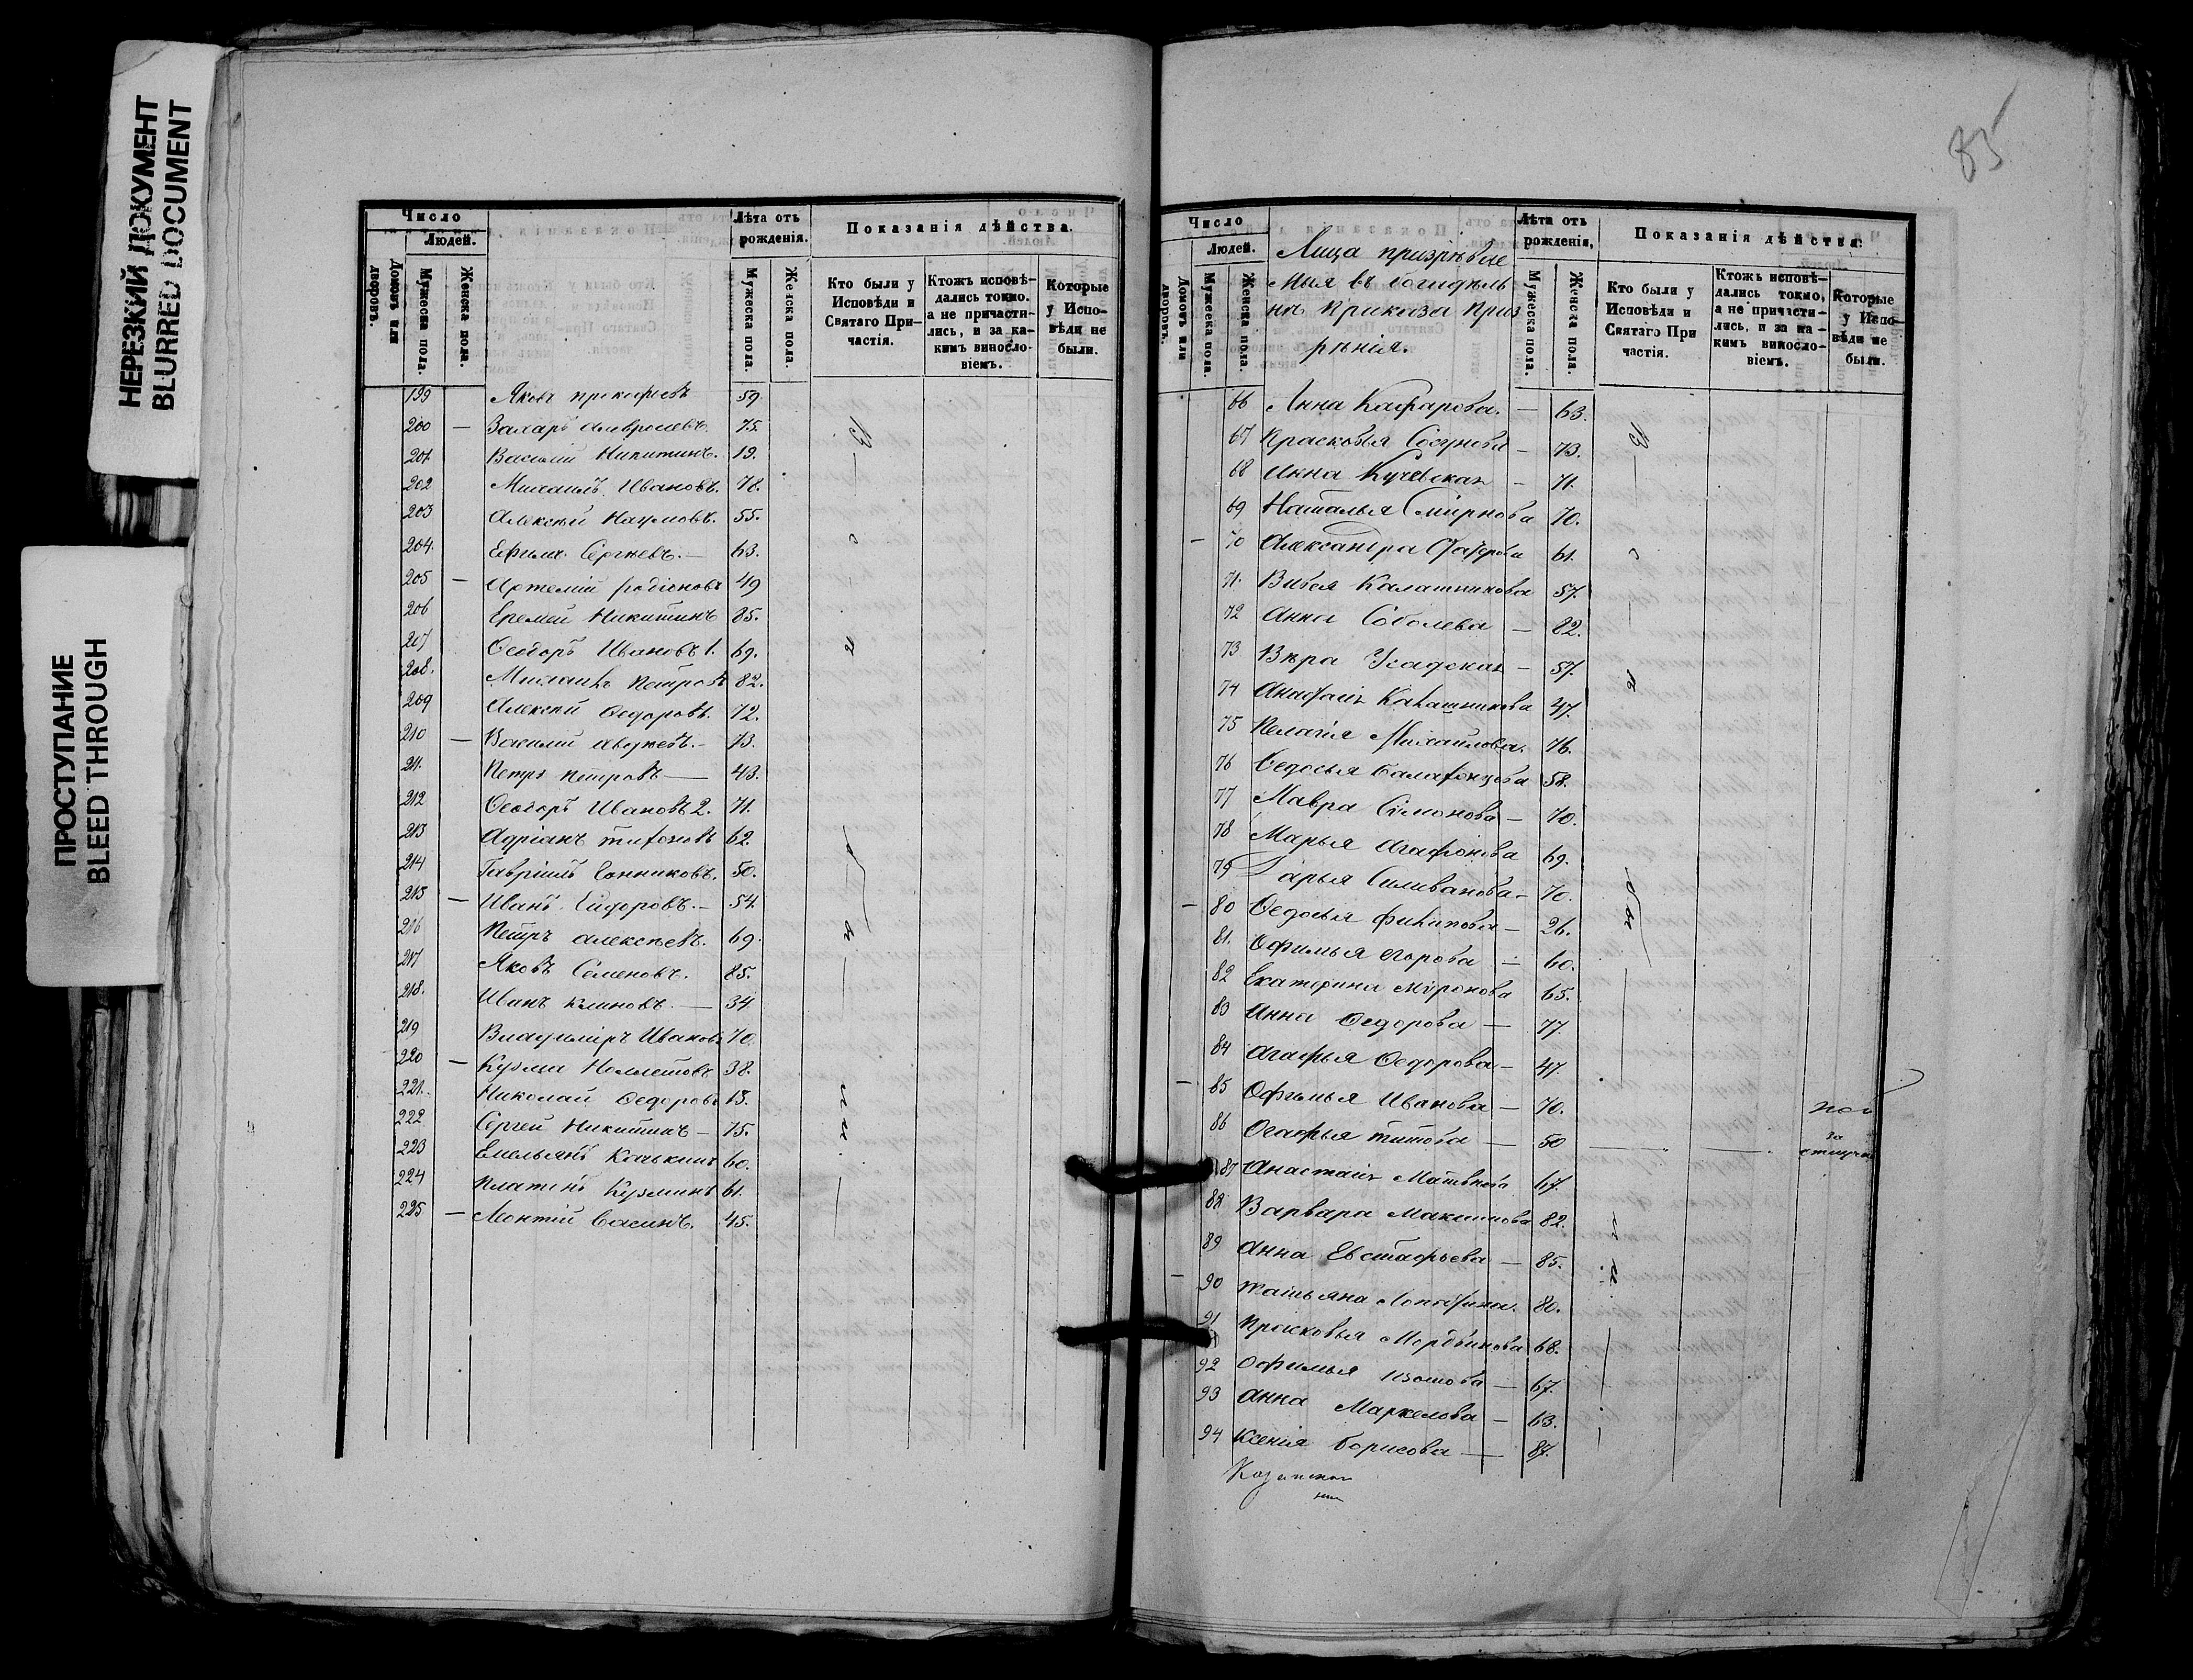 НЕРЕЗКИЙ ДОКУМЕНТ
BLURRED DOCUMENT
ПРОСТУПАНИЕ
BLEED THROUGH
Число
Людей.
Домовъ или дворовъ.
Мужеска пола.
Женска пола.
Лѣта отъ рожденія.
Мужеска пола.
Женска пола.
Показанія дѣйства.
Кто были у Исповѣди и Святаго Причастія.
Ктожъ исповѣдались токмо, а не причастились, и за какимъ винословіемъ.
Которые у Исповѣди не были.
199 Яковъ Прокофьевъ 59.
200 — Захаръ 75.
201 Василій Никитинъ. 19.
202 Михаилъ Ивановъ. 78.
203 Алексѣй Наумовъ. 55.
204. Ефимъ Сергѣевъ. — 63.
205 — Артемій Родіоновъ 49
206 Еремей Никитинъ 85.
207 Ѳеодоръ Ивановъ 1. 69.
208. Михаилъ Петровъ 82.
209 Алексѣй Ѳедоровъ. 72.
210 — Василій 73.
211. Петръ Петровъ — 43.
212 Ѳеодоръ Ивановъ 2. 71.
213 Адріанъ Тихоновъ 62.
214 Гавріилъ 50.
215 — Иванъ 54.
216 Петръ Алексѣевъ. 69.
217 Яковъ Семеновъ. 85.
218. Иванъ Климовъ. — 34
219 Владиміръ Ивановъ 70.
220 — Кузма 38.
221. Николай Ѳедоровъ 13.
222 Сергей Никитинъ — 75.
223 Емельянъ 60.
224 Платонъ Кузминъ 61.
225 — Васинъ. 45.
85
Число
Людей.
Домовъ или дворовъ.
Мужеска пола.
Женска пола.
Лица призрѣвае
мыя въ богадѣль
нѣ Приказа Приз
рѣнія.
Лѣта отъ рожденія,
Мужеска пола.
Женска пола.
Показанія дѣйства.
Кто были у Исповѣди и Святаго Причастія.
Ктожъ исповѣдались токмо, а не причастились, и за какимъ винословіемъ.
Которые у Исповѣди не были.
66 Анна Кафарова. — 63.
67 Прасковья Сосунова — 73.
68 Анна Кучевская — 71.
69 Наталья Смирнова 70.
— 70 Александра 61.
71. Калашникова 57.
72 Анна Соболева — 82.
73 Вѣра — 57.
74 Калашникова 47.
75 Пелагія Михайлова. 76.
76 Ѳедосья 58.
77 Мавра Симонова — 70.
78 Марья Агафонова 69.
79 Дарья Силиванова — 70.
— 80 Ѳедосья Филипова — 26.
81. Офимья Егорова — 60.
82 Екатерина Миронова 65.
83 Анна Ѳедорова — 77
84 Агафья Ѳедорова — 47.
— 85 Офимья Иванова — 70.
86 Огафья Титова — 50
за
87 Анастаія Матвѣева 67.
88 Варвара Максимова 82.
89 Анна Евстафьева — 85.
— 90 Татьяна Лопатина. 80.
91 Прасковья Мордвинова 68.
92 Офимья Изотова — 67.
93 Анна Маркелова — 63.
94 Ксенія Борисова — 87.